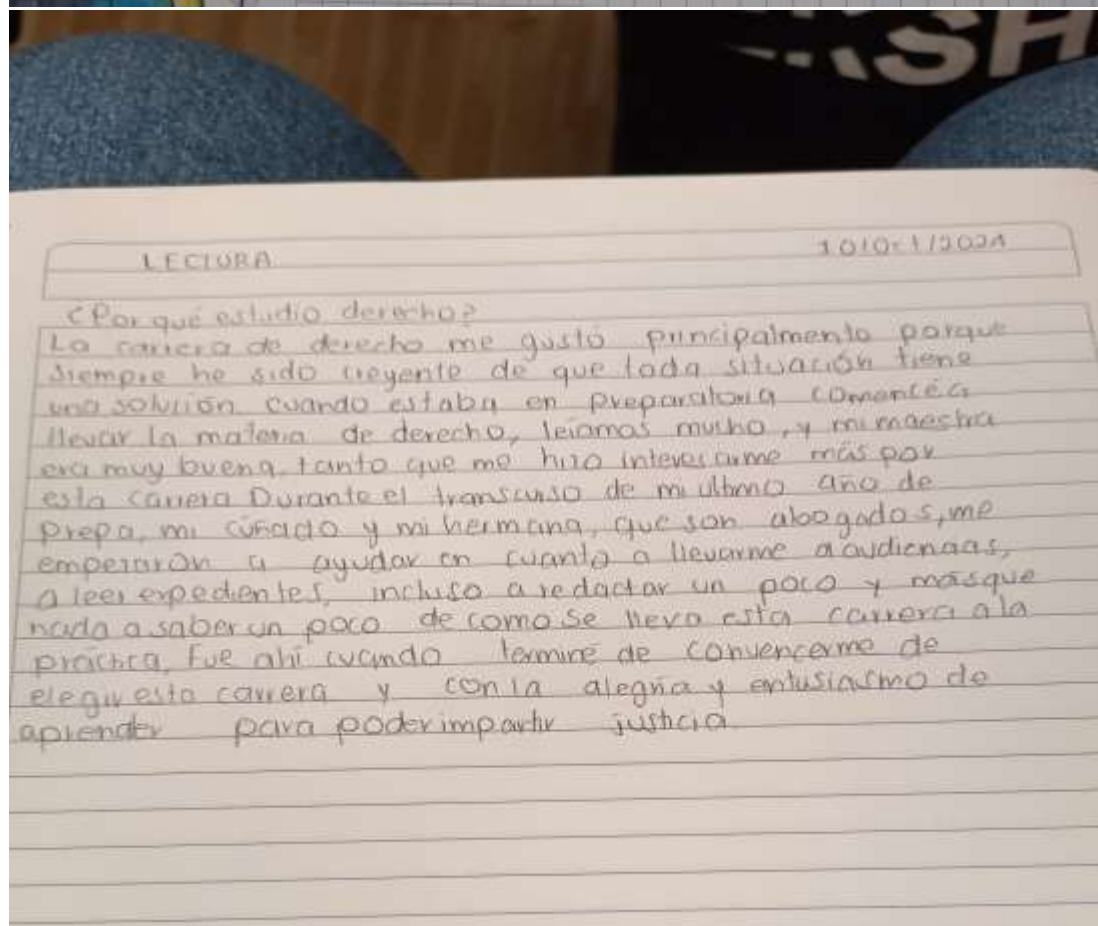 SH
LECTURA
¿Por qué estudio derecho?
La carrera de derecho me gustó principalmente porque
siempre he sido creyente de que toda situación tiene
una solución cuando estaba en preparatoria comencé a
llevar la materia de derecho, leíamos mucho, y mi maestra
era muy buena, tanto que me hizo interesarme más por
esta carrera Durante el transcurso de mi ultimo año de
prepa, mi cuñado y mi hermana, que son abogados, me
empezaron a ayudar en cuanto a llevarme a audiencias,
a leer expedientes, incluso a redactar un poco y más que
nada a saber un poco de como se lleva esta carrera a la
práctica, Fue ahí cuando terminé de convencerme de
elegir esta carrera y con la alegría y entusiasmo de
aprender para poder impartir justicia